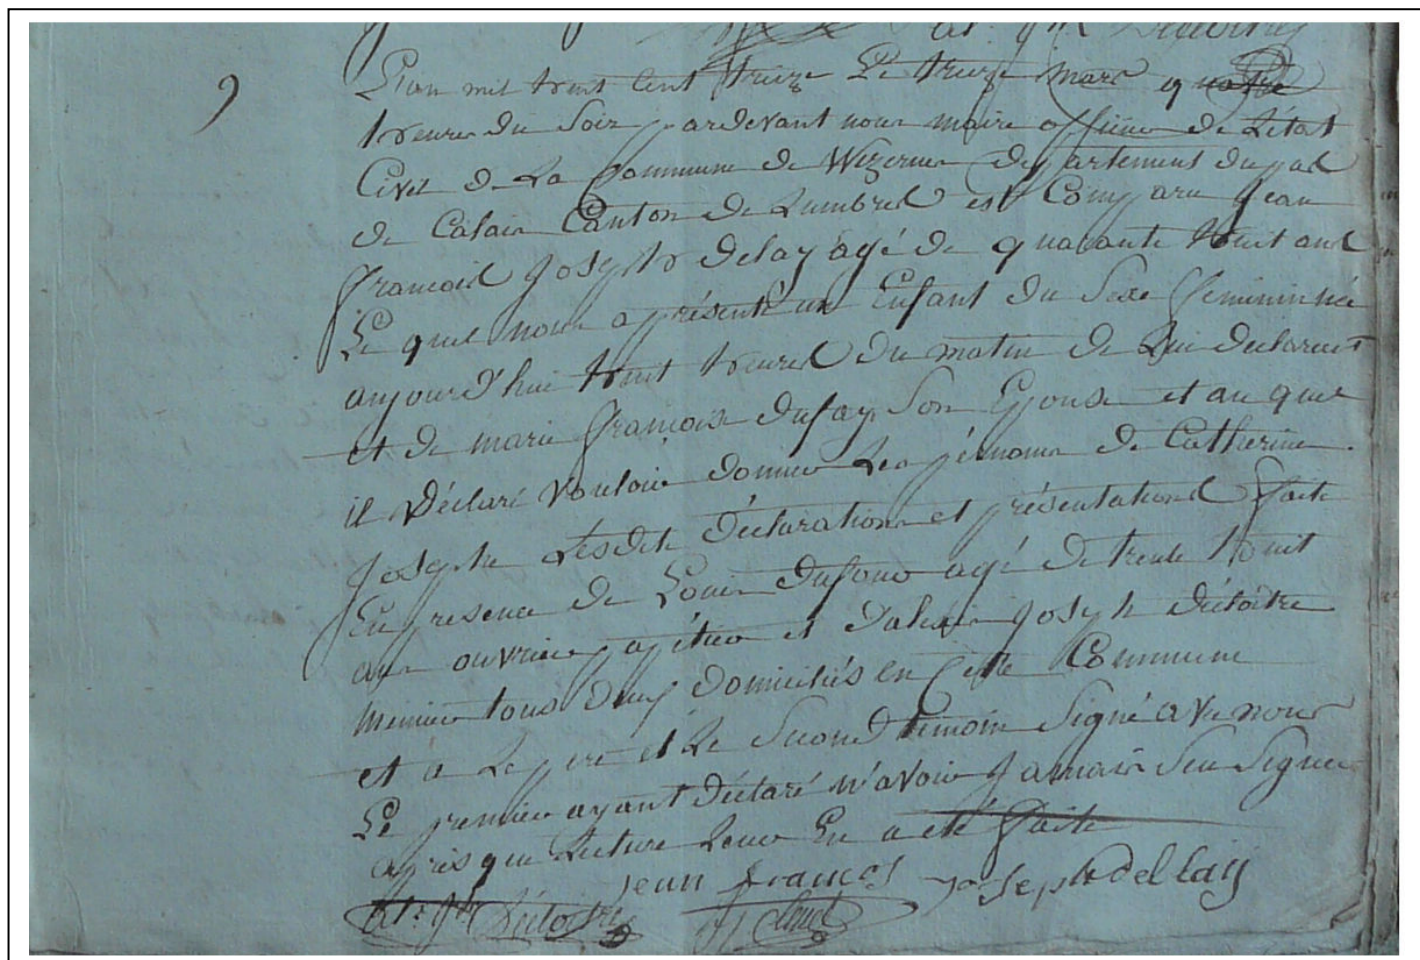 9
L'an mil huit cent treize Le treize mars quatre
heures du Soir pardevant nous maire officier de L'état
Civil de La Commune de Wizernes Departement du pas
de Calais Canton de Lumbres est Comparu Jean
françois Joseph delay agé de quarante huit ans
Le quel nous a présenté un Enfant du Sexe feminin née
aujourd'hui huit heures du matin de Lui declarant
et de marie françoise Dufay Son Epouse et au quel
il Déclaré Vouloir donner Les prénoms de Catherine
Joseph Lesdits Déclarations et présentations faite
En presence de Louis Dufour agé de trente huit
ans ouvrier papetier et D'alexis Joseph Décloitre
Menier tous deux domiciliés en Cette Commune
et a Le pere et Le Second temoin Signé avec nous
Le premier ayant déclaré n'avoir Jamais Seu Signer
après que Lecture Leur En a été faite
Jean françois Joseph dellay